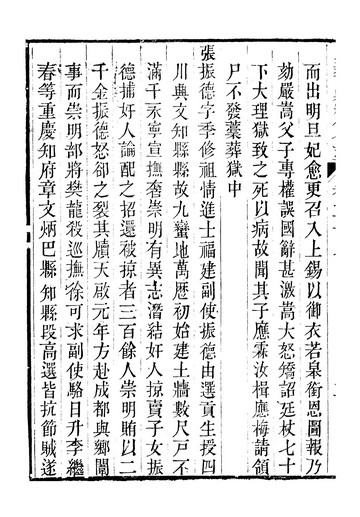 而出明旦妃愈更召入上錫以御衣若臯銜恩圖報乃
劾嚴嵩父子專權誤國辭甚激嵩大怒矯詔廷杖七十
下大理獄致之死以病故聞其子應霖汝楫應梅請領
尸不發藁葬獄中
張振德字季修祖情進士福建副使振德由選貢生授四
川興文知縣縣故九蠻地萬曆初始建土牆數尺戸不
滿千永寧宣撫奢崇明有異志潛結奸人掠賣子女振
德捕奸人論配之招還被掠者三百餘人崇明賄以二
千金振德怒卻之裂其牘天啟元年方赴成都與鄉闈
事而崇明部將樊龍殺巡撫徐可求副使駱日升李繼
春等重慶知府章文炳巴縣知縣段高選皆抗節賊遂